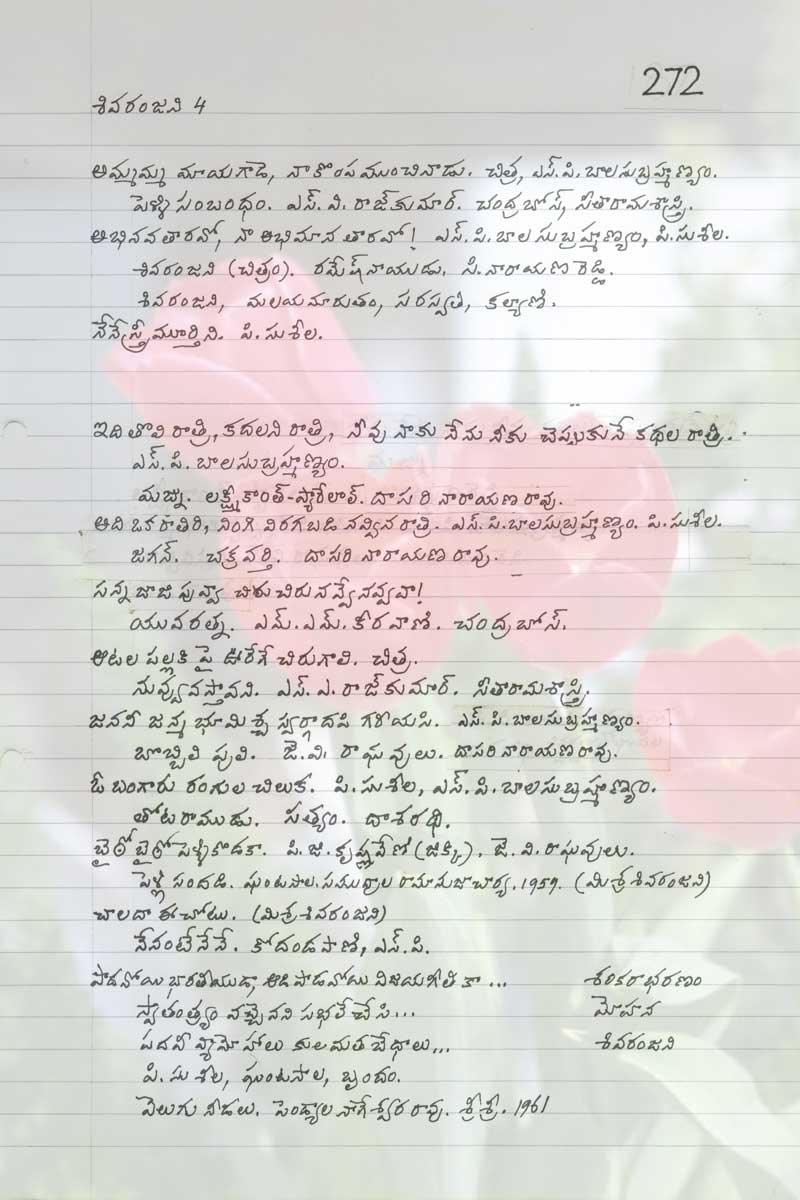 272
శివరంజని 4
అమ్మమ్మ మాయగాడె, నా కొంప ముంచినాడు. చిత్ర, ఎస్.పి.బాలసుబ్రహ్మణ్యం.
పెళ్ళి సంబంధం. ఎస్.వి.రాజ్‌కుమార్. చంద్రబోస్, సీతారామశాస్త్రి.
అభినవతారవో, నా అభిమాన తారవో! ఎస్.పి.బాలసుబ్రహ్మణ్యం, పి.సుశీల.
శివరంజని (చిత్రం). రమేష్‌నాయుడు. సి.నారాయణరెడ్డి.
శివరంజని, మలయమారుతం, సరస్వతి, కల్యాణి.
నేనే స్త్రీమూర్తిని. పి.సుశీల.
ఇది తొలి రాత్రి, కదలని రాత్రి, నీవు నాకు నేను నీకు చెప్పుకునే కథల రాత్రి..
ఎస్.పి.బాలసుబ్రహ్మణ్యం.
మజ్ను. లక్ష్మీకాంత్-ప్యారేలాల్. దాసరి నారాయణ రావు.
అది ఒక రాతిరి, నింగి విరగబడి నవ్విన రాత్రి. ఎస్.పి.బాలసుబ్రహ్మణ్యం. పి.సుశీల.
జగన్. చక్రవర్తి. దాసరి నారాయణ రావు.
సన్నజాజి పువ్వా చిరు చిరు నవ్వే నవ్వవా!
యువరత్న. ఎమ్.ఎమ్.కీరవాణి. చంద్రబోస్.
ఆటల పల్లకి పై ఊరేగే చిరుగాలి. చిత్ర.
నువ్వు వస్తావని. ఎస్.ఎ.రాజ్‌కుమార్. సీతారామశాస్త్రి.
జననీ జన్మ భూమిశ్చ స్వర్గాదపి గరీయసి. ఎస్.పి.బాలసుబ్రహ్మణ్యం.
బొబ్బిలి పులి. జె.వి. రాఘవులు. దాసరి నారాయణ రావు.
ఓ బంగారు రంగుల చిలుక. పి.సుశీల, ఎస్.పి.బాలసుబ్రహ్మణ్యం.
తోటరాముడు. సత్యం. దాశరథి.
బైఠో బైఠో పెళ్ళికొడకా. పి.జి.కృష్ణవేణి (జిక్కి), జె.వి.రాఘవులు.
పెళ్ళి సందడి. ఘంటసాల. సముద్రాల రామానుజాచార్య. 1959. (మిశ్రశివరంజని)
చాలదా ఈచోటు. (మిశ్రశివరంజని)
నేనంటేనేనే. కోదండపాణి, ఎస్.పి.
పాడవోయి భారతీయుడా, ఆడి పాడవోయి విజయగీతికా... శంకరాభరణం
స్వాతంత్ర్యం వచ్చెనని సభలే చేసి... మోహన
పదవీ వ్యామోహాలు కులమత భేధాలు... శివరంజని
పి.సుశీల, ఘంటసాల, బృందం.
వెలుగు నీడలు. పెండ్యాల నాగేశ్వరరావు. శ్రీశ్రీ. 1961